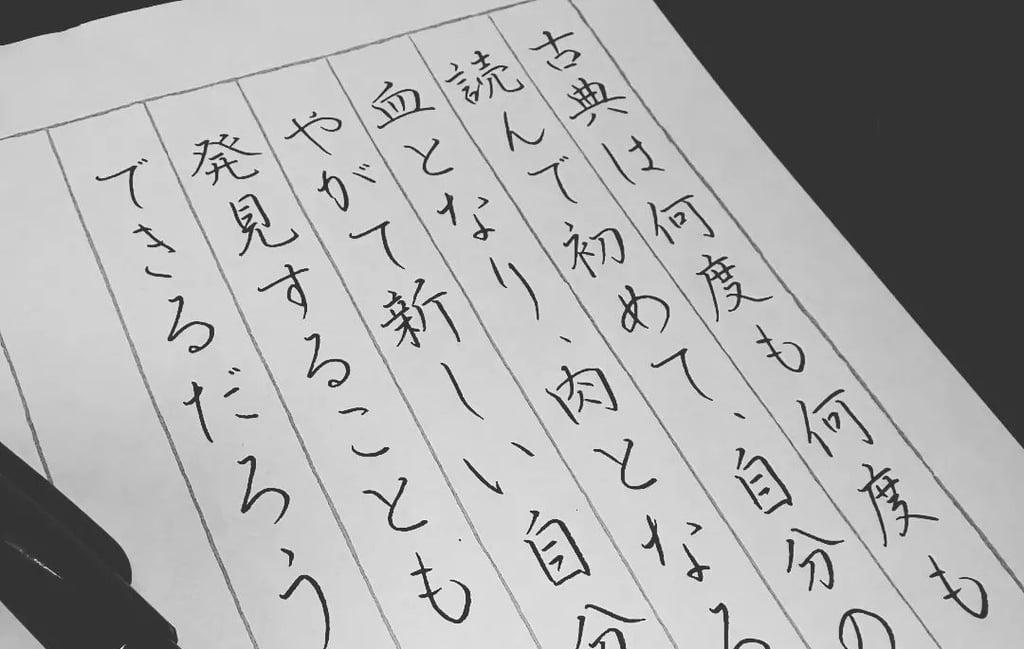 古典は何度も何度も
読んで初めて、自分の
血となり、肉となる
やがて新しい自分
発見することも
できるだろう